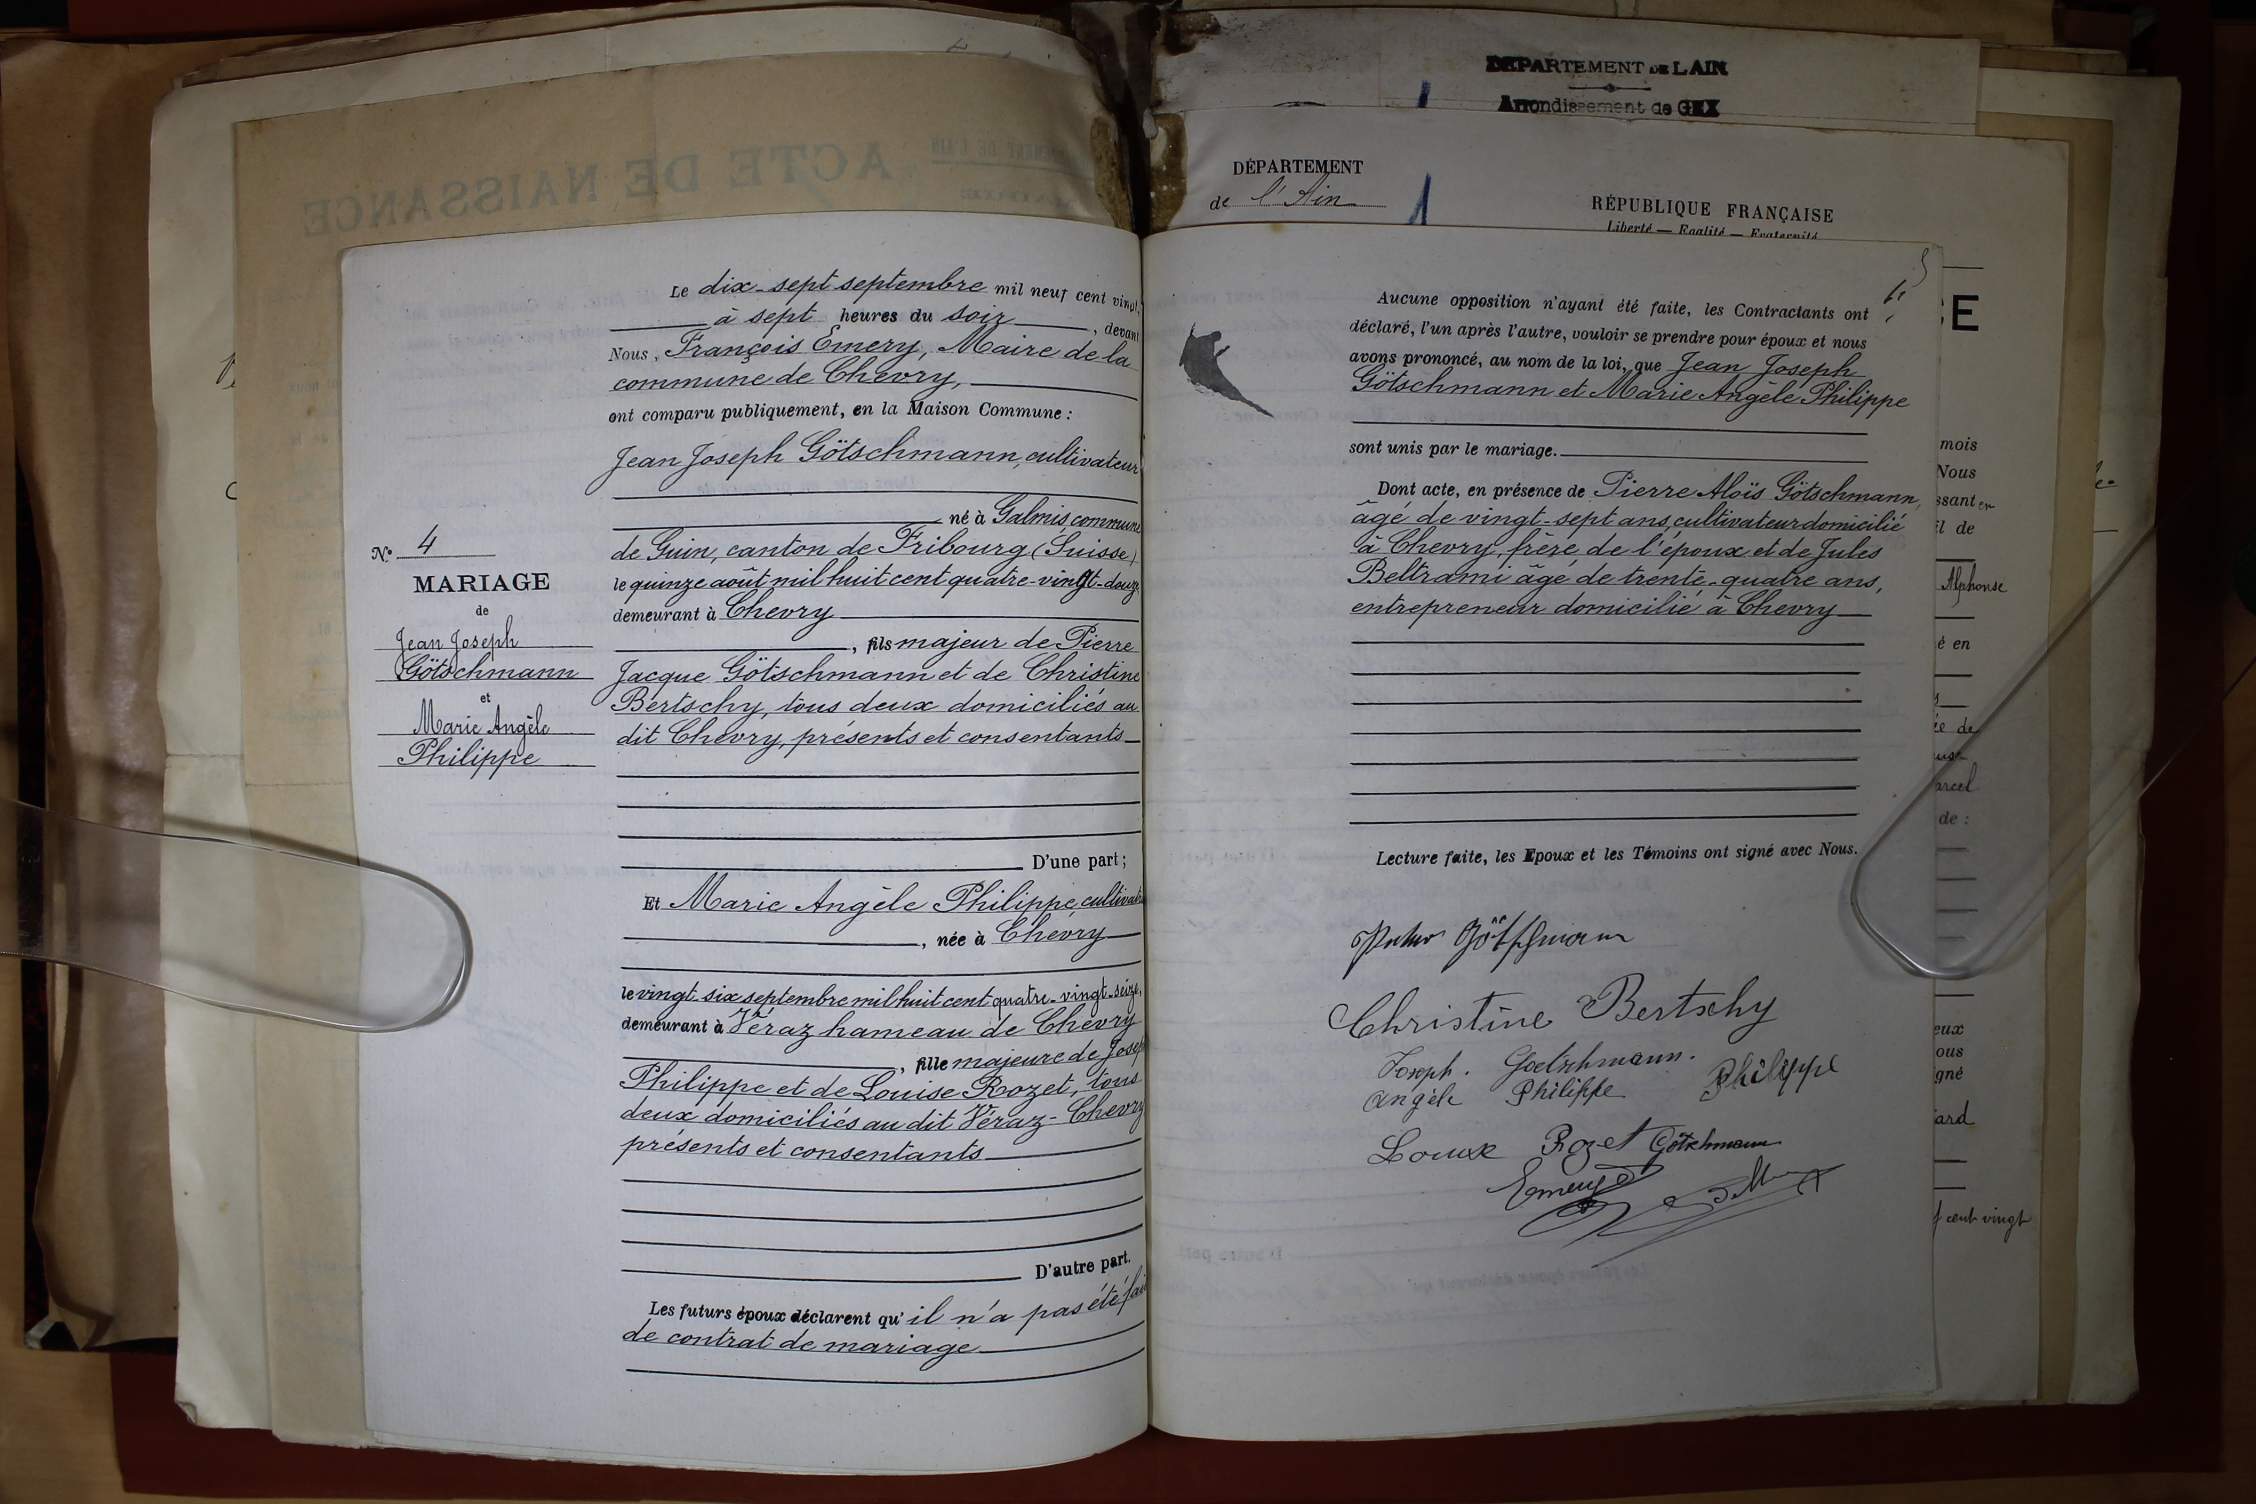 DEPARTEMENT DE L'AIN
Arrondissement de GEX
DÉPARTEMENT
de l'Ain
1
RÉPUBLIQUE FRANÇAISE
Liberté — Egalité — Fraternité
ACTE DE NAISSANCE
N° 4
MARIAGE
de
Jean Joseph
Götschmann
et
Marie Angèle
Philippe
Le dix-sept septembre mil neuf cent vingt,
à sept heures du soir, devant
Nous, François Emery, Maire de la
commune de Chevry,
ont comparu publiquement, en la Maison Commune :
Jean Joseph Götschmann, cultivateur
né à Galmis, commune
de Guin, canton de Fribourg (Suisse)
le quinze août mil huit cent quatre-vingt-douze
demeurant à Chevry
, fils majeur de Pierre
Jacque Götschmann et de Christine
Bertschy, tous deux domiciliés au
dit Chevry, présents et consentants
D'une part ;
Et Marie Angèle Philippe, cultivat
, née à Chevry
le vingt six septembre mil huit cent quatre-vingt-seize,
demeurant à Véraz hameau de Chevry
, fille majeure de Josep
Philippe et de Louise Rozet, tous
deux domiciliés au dit Véraz-Chevry
présents et consentants
D'autre part.
Les futurs époux déclarent qu'il n'a pas été fai
de contrat de mariage
Aucune opposition n'ayant été faite, les Contractants ont
déclaré, l'un après l'autre, vouloir se prendre pour époux et nous
avons prononcé, au nom de la loi, que Jean Joseph
Götschmann et Marie Angèle Philippe
sont unis par le mariage.
Dont acte, en présence de Pierre Aloïs Götschmann,
âgé de vingt-sept ans, cultivateur domicilié
à Chevry, frère de l'époux et de Jules
Beltrami âgé de trente-quatre ans,
entrepreneur domicilié à Chevry
Lecture faite, les Epoux et les Témoins ont signé avec Nous.
Götschmann
Christine Bertschy
Joseph. Goetschmann.
Angèle Philippe Philippe
Louise Rozet Götschmann
Emery
E
mois
Nous
ssant en
il de
Alphonse
é en
ée de
arcel
de :
eux
ous
gné
ard
cent vingt